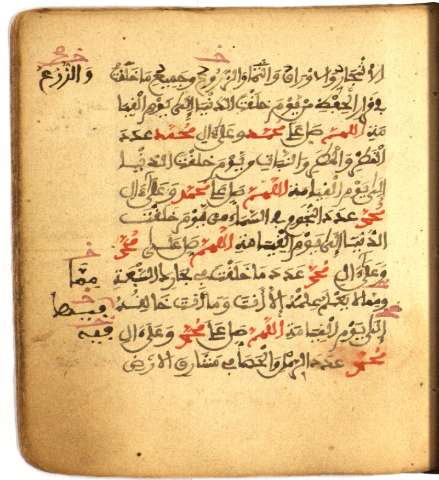 والزرع
والاوراق والثمار والزروع وجميع ما خلقت
الحفظ من يوم خلقت الدنيا الى يوم القيا
مة اللهم صل على محمد وعلى ءال محمد عدد
القطر والمطر والنبات من يوم خلقت الدنيا
الى يوم القيامة اللهم صل على محمد وعلى ءال
محمد عدد النجوم في السماء من يوم خلقت
الدنيا الى يوم القيامة اللهم صل على محمد
وعلى ءال محمد عدد ما خلقت في بحارك السبعة
مما
لا يعلم علمه الا انت وما انت خالقه
الى يوم القيامة اللهم صل على محمد وعلى ءال
فيه
محمد عدد الرمل والحصا في مشارق الارض